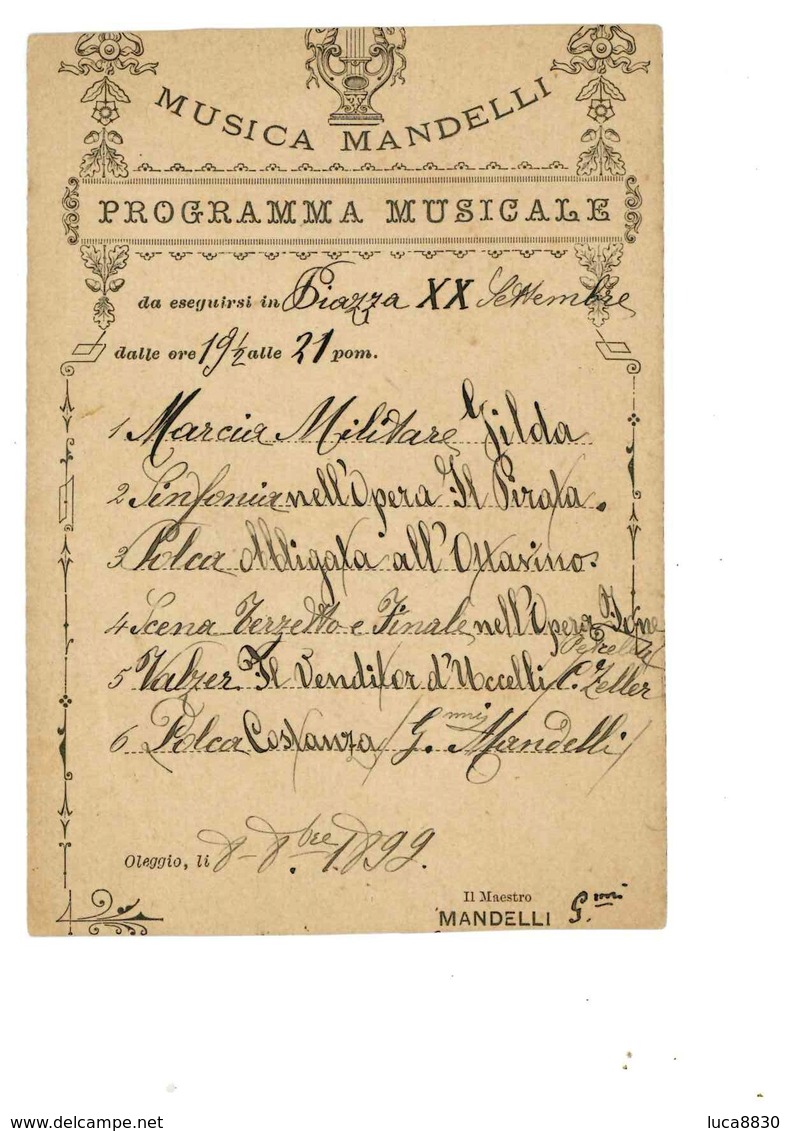 MUSICA MANDELLI
PROGRAMMA MUSICALE
da eseguirsi in Piazza XX Settembre
dalle ore 19½ alle 21 pom.
1 Marcia Militare Gilda
2 Sinfonia nell'Opera Il Pirata.
3 Polca Obbligata all'Ottavino.
4 Scena Terzetto e Finale nell'Opera Jone
Petrella
5 Valzer Il Venditor d'Uccelli C. Zeller
6 Polca Costanza G.nni Mandelli
Oleggio, li 8-8.bre 1899.
Il Maestro
MANDELLI G.nni
luca8830